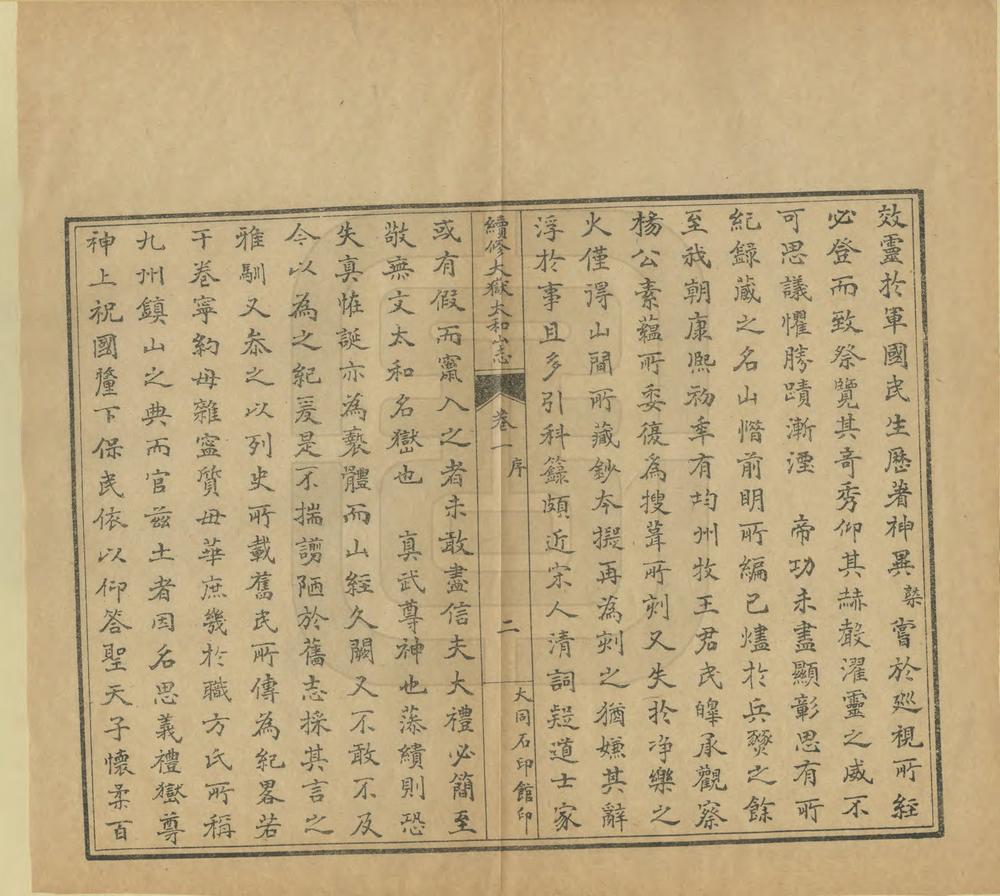 效靈於軍國民生歷著神異棨嘗於巡視所經
必登而致祭覽其奇秀仰其赫聲濯靈之威不
可思議懼勝蹟漸湮　帝功未盡顯彰思有所
紀錄藏之名山慨前明所編已燼於兵燹之餘
至我朝康熙初年有均州牧王君民皥承觀察
楊公素蘊所委復為搜葺所刻又失於净樂之
火僅得山間所藏鈔本擬再為刻之猶嫌其辭
浮於事且多引科籙頗近宋人清詞疑道士家
續修大嶽太和山志　卷一　序　二　大同石印館印
或有假而竄入之者未敢盡信夫大禮必簡至
敬無文太和名嶽也　真武尊神也藻繢則恐
失真恠誕亦為褻體而山經久闕又不敢不及
今以為之紀爰是不揣謭陋於舊志採其言之
雅馴又叅之以列史所載舊民所傳為紀畧若
干卷寧約毋雜寧質毋華庶幾於職方氏所稱
九州鎮山之典而官茲土者因名思義禮嶽尊
神上祝國釐下保民依以仰答聖天子懷柔百